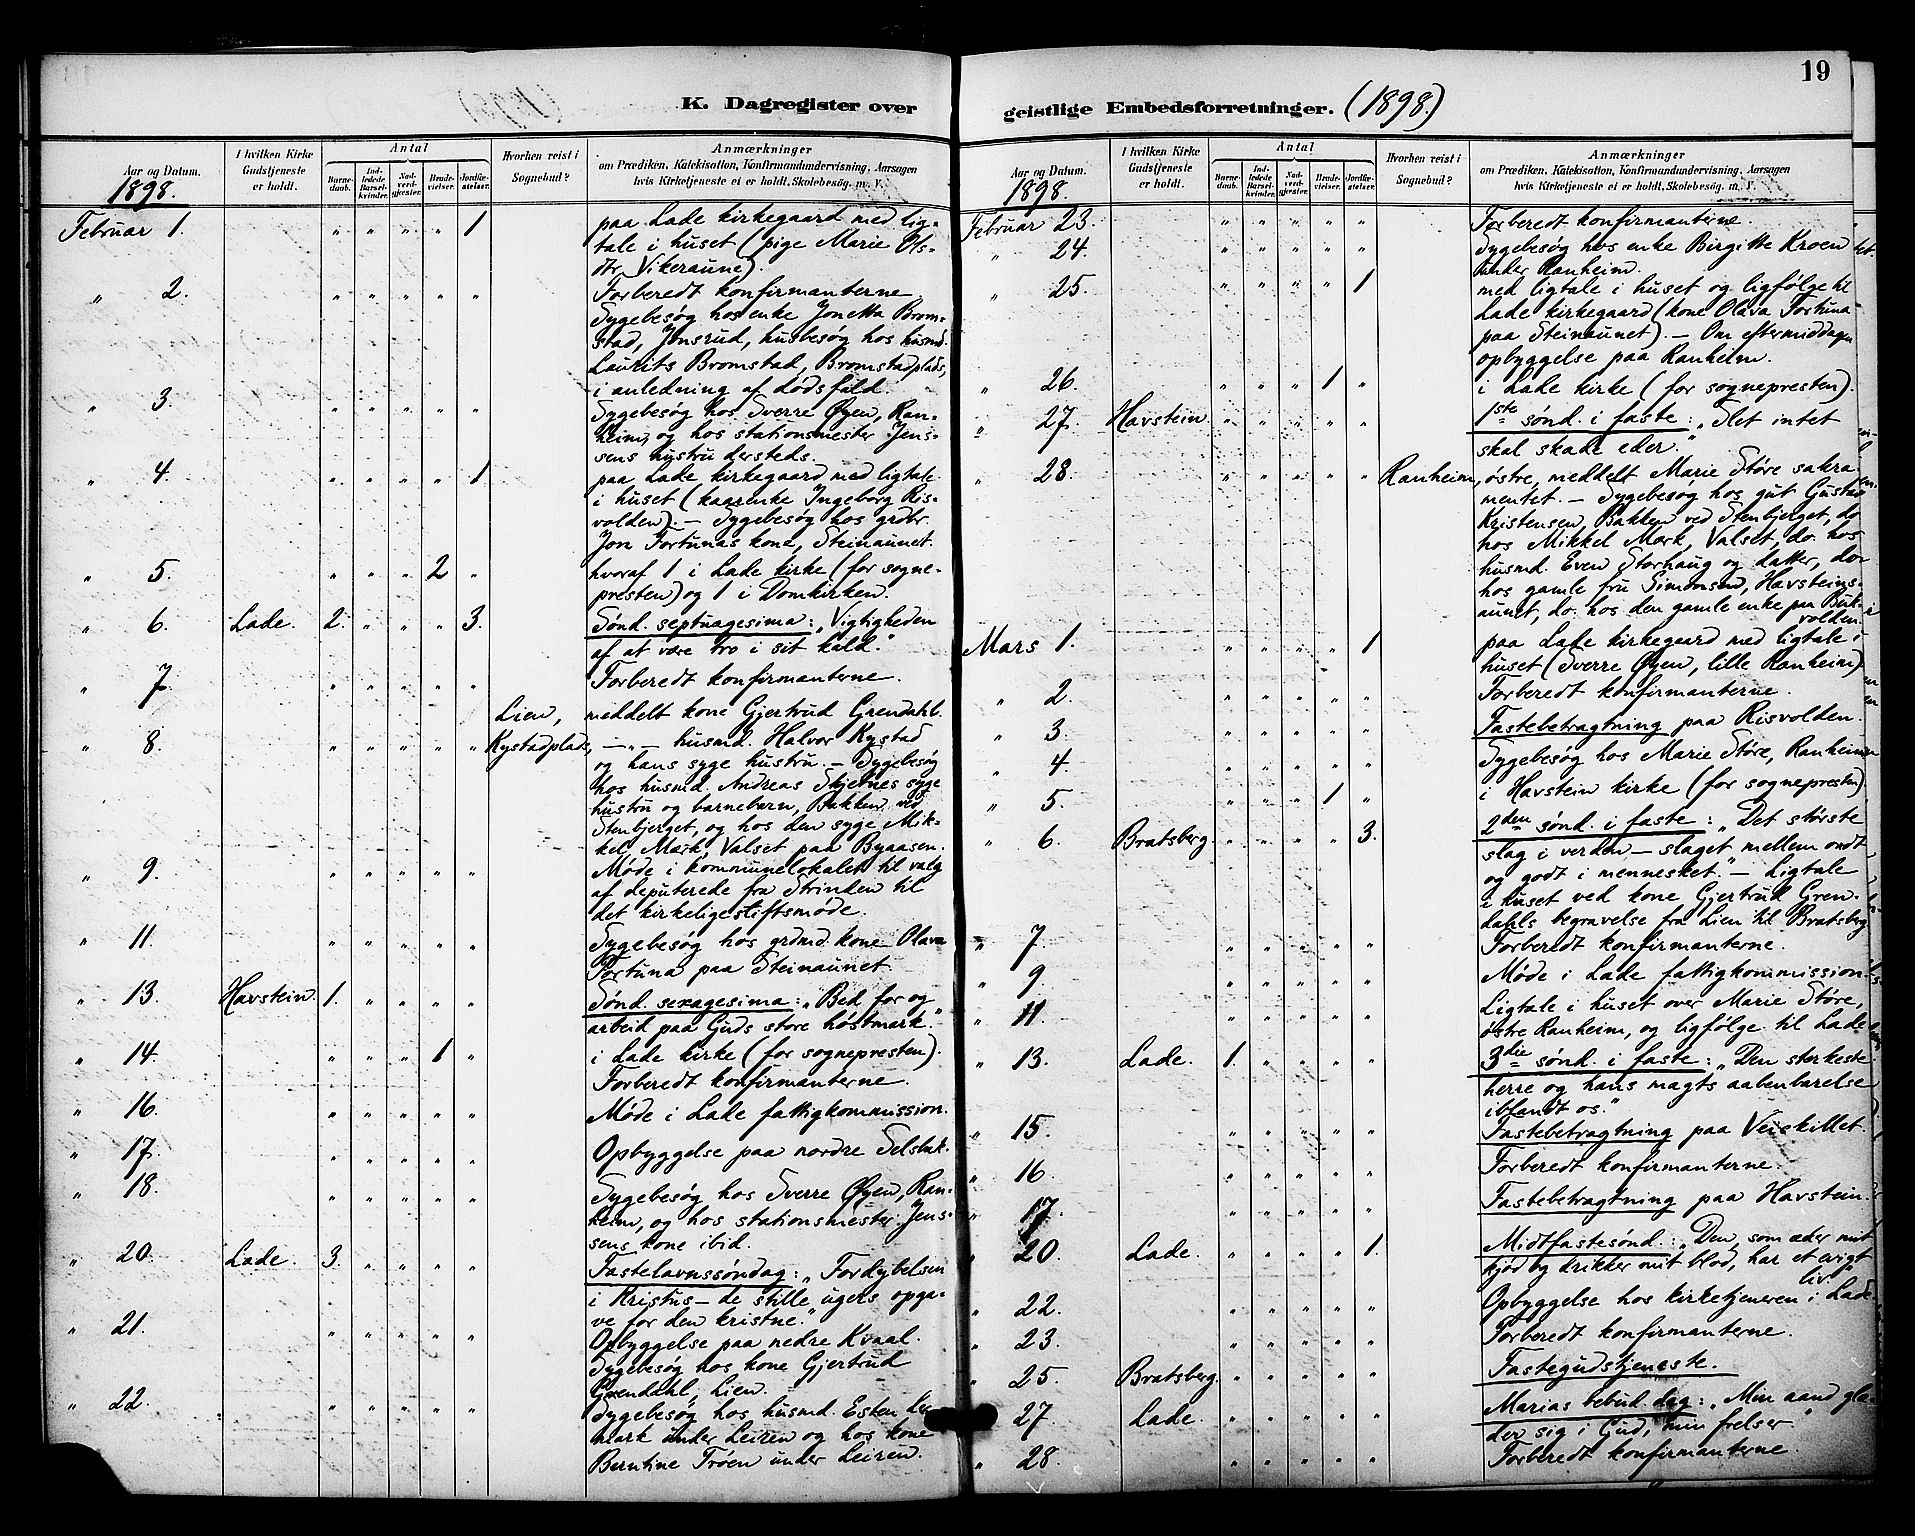 19
K. Dagregister over geistlige Embedsforretninger. (1898.)
Aar og Datum. I hvilken Kirke Gudstjeneste er holdt. Antal Barnedaab. Indledede Barselkvinder. Nadverdgjester. Brudevielser. Jordfæstelser. Hvorhen reist i Sognebud? Anmærkninger om Prædiken, Katekisation, Konfirmandundervisning, Aarsagen hvis Kirketjeneste ei er holdt, Skolebesøg. m. V.
1898.
Februar 1. " " " " 1 paa Lade kirkegaard med lig-
tale i huset (pige Marie Ols-
dtr Vikeraune).
" 2. " " " " " Forberedt konfirmanterne
Sygebesøg hos enke Jonetta Brom-
stad, Jonsrud, husbesøg hos husmd.
Laurits Bromstad, Bromstadplads,
i anledning af dødsfald.
" 3. " " " " " Sygebesøg hos Sverre Øyen, Ran-
heim, og hos stationsmester Jens-
sens hustru dersteds.
" 4. " " " " 1 paa Lade kirkegaard med ligtale
i huset (kaarenke Ingeborg Ris-
volden). – Sygebesøg hos grdbr.
Jon Fortunas kone, Steinaunet.
" 5. " " " 2 " hvoraf 1 i Lade kirke (for sogne-
presten) og 1 i Domkirken.
" 6. Lade. 2. " " " 3. Sønd. septuagesima: „Vigtigheden
af at være tro i sit kald."
" 7. " " " " " Forberedt konfirmanterne.
Lien, meddelt kone Gjertrud Grendahl.
" 8. " " " " " Kystadplads, – " – husmd. Halvor Kystad
og hans syge hustru. – Sygebesøg
hos husmd. Andreas Skjetnes syge
hustru og barnebarn, Bakken ved
Stenbjerget, og hos den syge Mik-
kel Mærk, Valset paa Byaasen.
" 9. " " " " " Møde i kommunelokalet til valg
af deputerede fra Strinden til
det kirkelige stiftsmøde.
" 11. " " " " " Sygebesøg hos grdmd.kone Olava
Fortuna paa Steinaunet.
" 13. Havstein. 1. " " " " Sønd. sexagesima: „Bed for og
arbeid paa Guds store høstmark."
" 14. " " " 1 " i Lade kirke (for sognepresten).
Forberedt konfirmanterne.
" 16. " " " " " Møde i Lade fattigkommission.
" 17. " " " " " Opbyggelse paa nordre Selsbak.
" 18. " " " " " Sygebesøg hos Sverre Øyen, Ran-
heim, og hos stationsmester Jens-
sens kone ibid.
" 20. Lade. 3. " " " " Fastelavnssøndag: „Fordybelsen
i Kristus – de stille ugers opga-
ve for den kristne."
" 21. " " " " " Opbyggelse paa nedre Kvaal.
Sygebesøg hos kone Gjertrud
Grendahl, Lien.
" 22. " " " " " Sygebesøg hos husmd. Esten
mark under Leiren og hos kone
Berntine Trøen under Leiren.
Aar og Datum. I hvilken Kirke Gudstjeneste er holdt. Antal Barnedaab. Indledede Barselkvinder. Nadverdgjester. Brudevielser. Jordfæstelser. Hvorhen reist i Sognebud? Anmærkninger om Prædiken, Katekisation, Konfirmandundervisning, Aarsagen hvis Kirketjeneste ei er holdt, Skolebesøg. m. V.
1898.
Februar 23. " " " " " Forberedt konfirmanterne.
" 24. " " " " " Sygebesøg hos enke Birgitte Kroen
under Ranheim.
" 25. " " " " 1 med ligtale i huset og ligfølge til
Lade kirkegaard (kone Olava Fortuna
paa Steinaunet). – Om eftermiddagen
opbyggelse paa Ranheim.
" 26. " " " 1 " i Lade kirke (for sognepresten).
" 27. Havstein. " " " " " 1ste sønd. i faste: „Slet intet
skal skade eder."
" 28. " " " " " Ranheim, østre, meddelt Marie Støre sakra-
mentet. – Sygebesøg hos gut Gustav
Kristensen, Bakken ved Stenbjerget, do.
hos Mikkel Mærk, Valset, do. hos
husmd. Even Storhaug og datter, do.
hos gamle fru Simonsen, Havsteins-
aunet, do. hos den gamle enke paa Buk-
volden.
Mars 1. " " " " 1 paa Lade kirkegaard med ligtale i
huset (Sverre Øyen, lille Ranheim).
" 2. " " " " " Forberedt konfirmanterne.
" 3. " " " " " Fastebetragtning paa Risvolden.
" 4. " " " " " Sygebesøg hos Marie Støre, Ranheim
" 5. " " " 1 " i Havstein kirke (for sognepresten)
" 6. Bratsberg. " " " " 3. 2den sønd. i faste: „Det største
slag i verden – slaget mellem ondt
og godt i mennesket." – Ligtale
i huset ved kone Gjertrud Gren-
dahls begravelse fra Lien til Bratsberg
" 7. " " " " " Forberedt konfirmanterne.
" 9. " " " " " Møde i Lade fattigkommission.
" 11. " " " " " Ligtale i huset over Marie Støre,
østre Ranheim, og ligfølge til Lade
" 13. Lade. 1. " " " " 3die sønd. i faste: „Den sterkeste
herre og hans magts aabenbarelse
iblandt os."
" 15. " " " " " Fastebetragtning paa Veiskillet.
" 16. " " " " " Forberedt konfirmanterne.
" 17. " " " " " Fastebetragtning paa Havstein.
" 20. Lade. " " " " 1. Midtfastesønd.: „Den, som æder mit
kjød og drikker mit blod, har et evigt
liv."
" 22. " " " " " Opbyggelse hos kirketjeneren i Lade.
" 23. " " " " " Forberedt konfirmanterne.
" 25. Bratsberg. " " " " " Fastegudstjeneste.
" 27. Lade. " " " " " Marias bebud. dag: „Min aand glæ-
der sig i Gud, min frelser."
" 28. " " " " " Forberedt konfirmanterne.